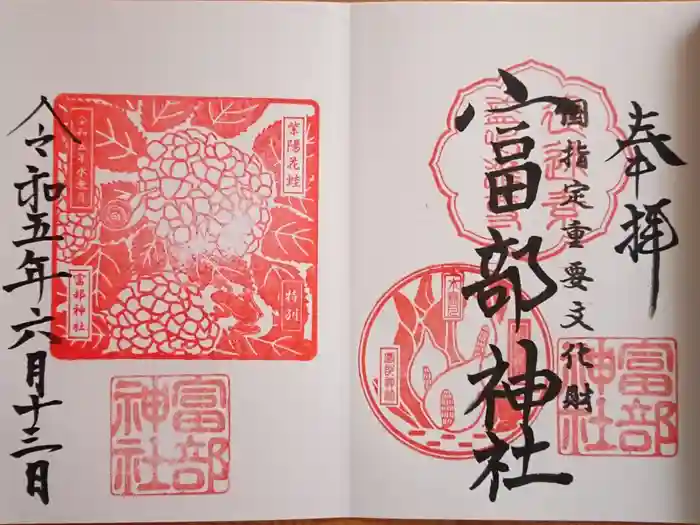 奉拝
國指定重要文化財
富部神社
富部神社
紫陽花蛙
特別
富部神社
富部神社
令和五年六月十三日